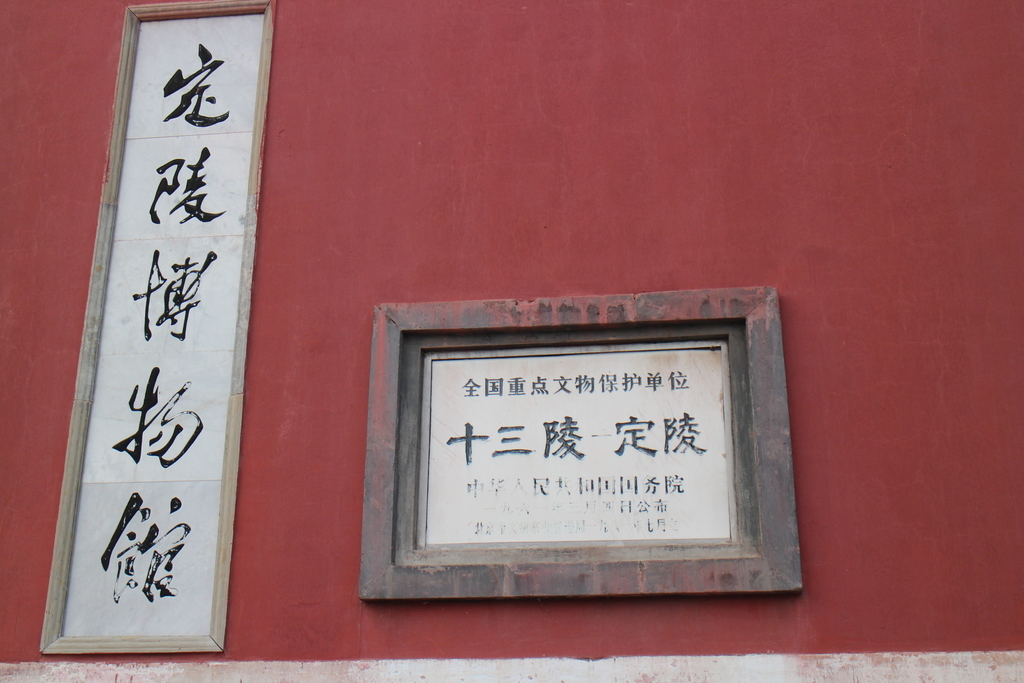 定陵博物館
全国重点文物保护单位
十三陵—定陵
中华人民共和国国务院
一九六一年三月四日公布